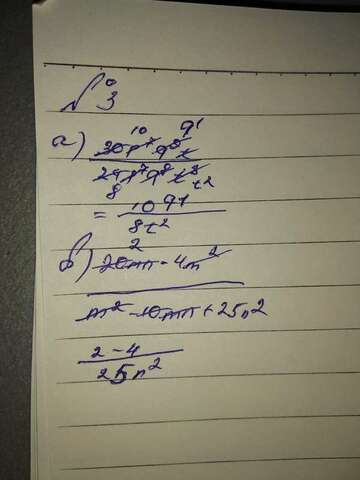 №3
а) 30p⁷q⁹t / 24p⁷q⁸t³
= 10q¹ / 8t²
б) 20mn - 4m² / m² - 10mn + 25n²
2 - 4 / 25n²